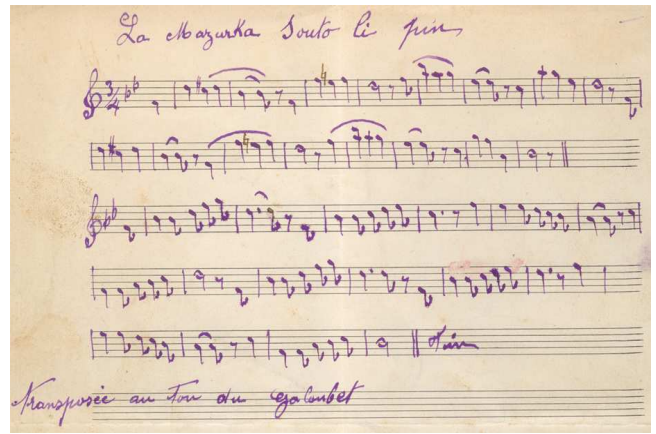 La Mazurka Souto li pin
3/4
Fin
transposée au ton du galoubet